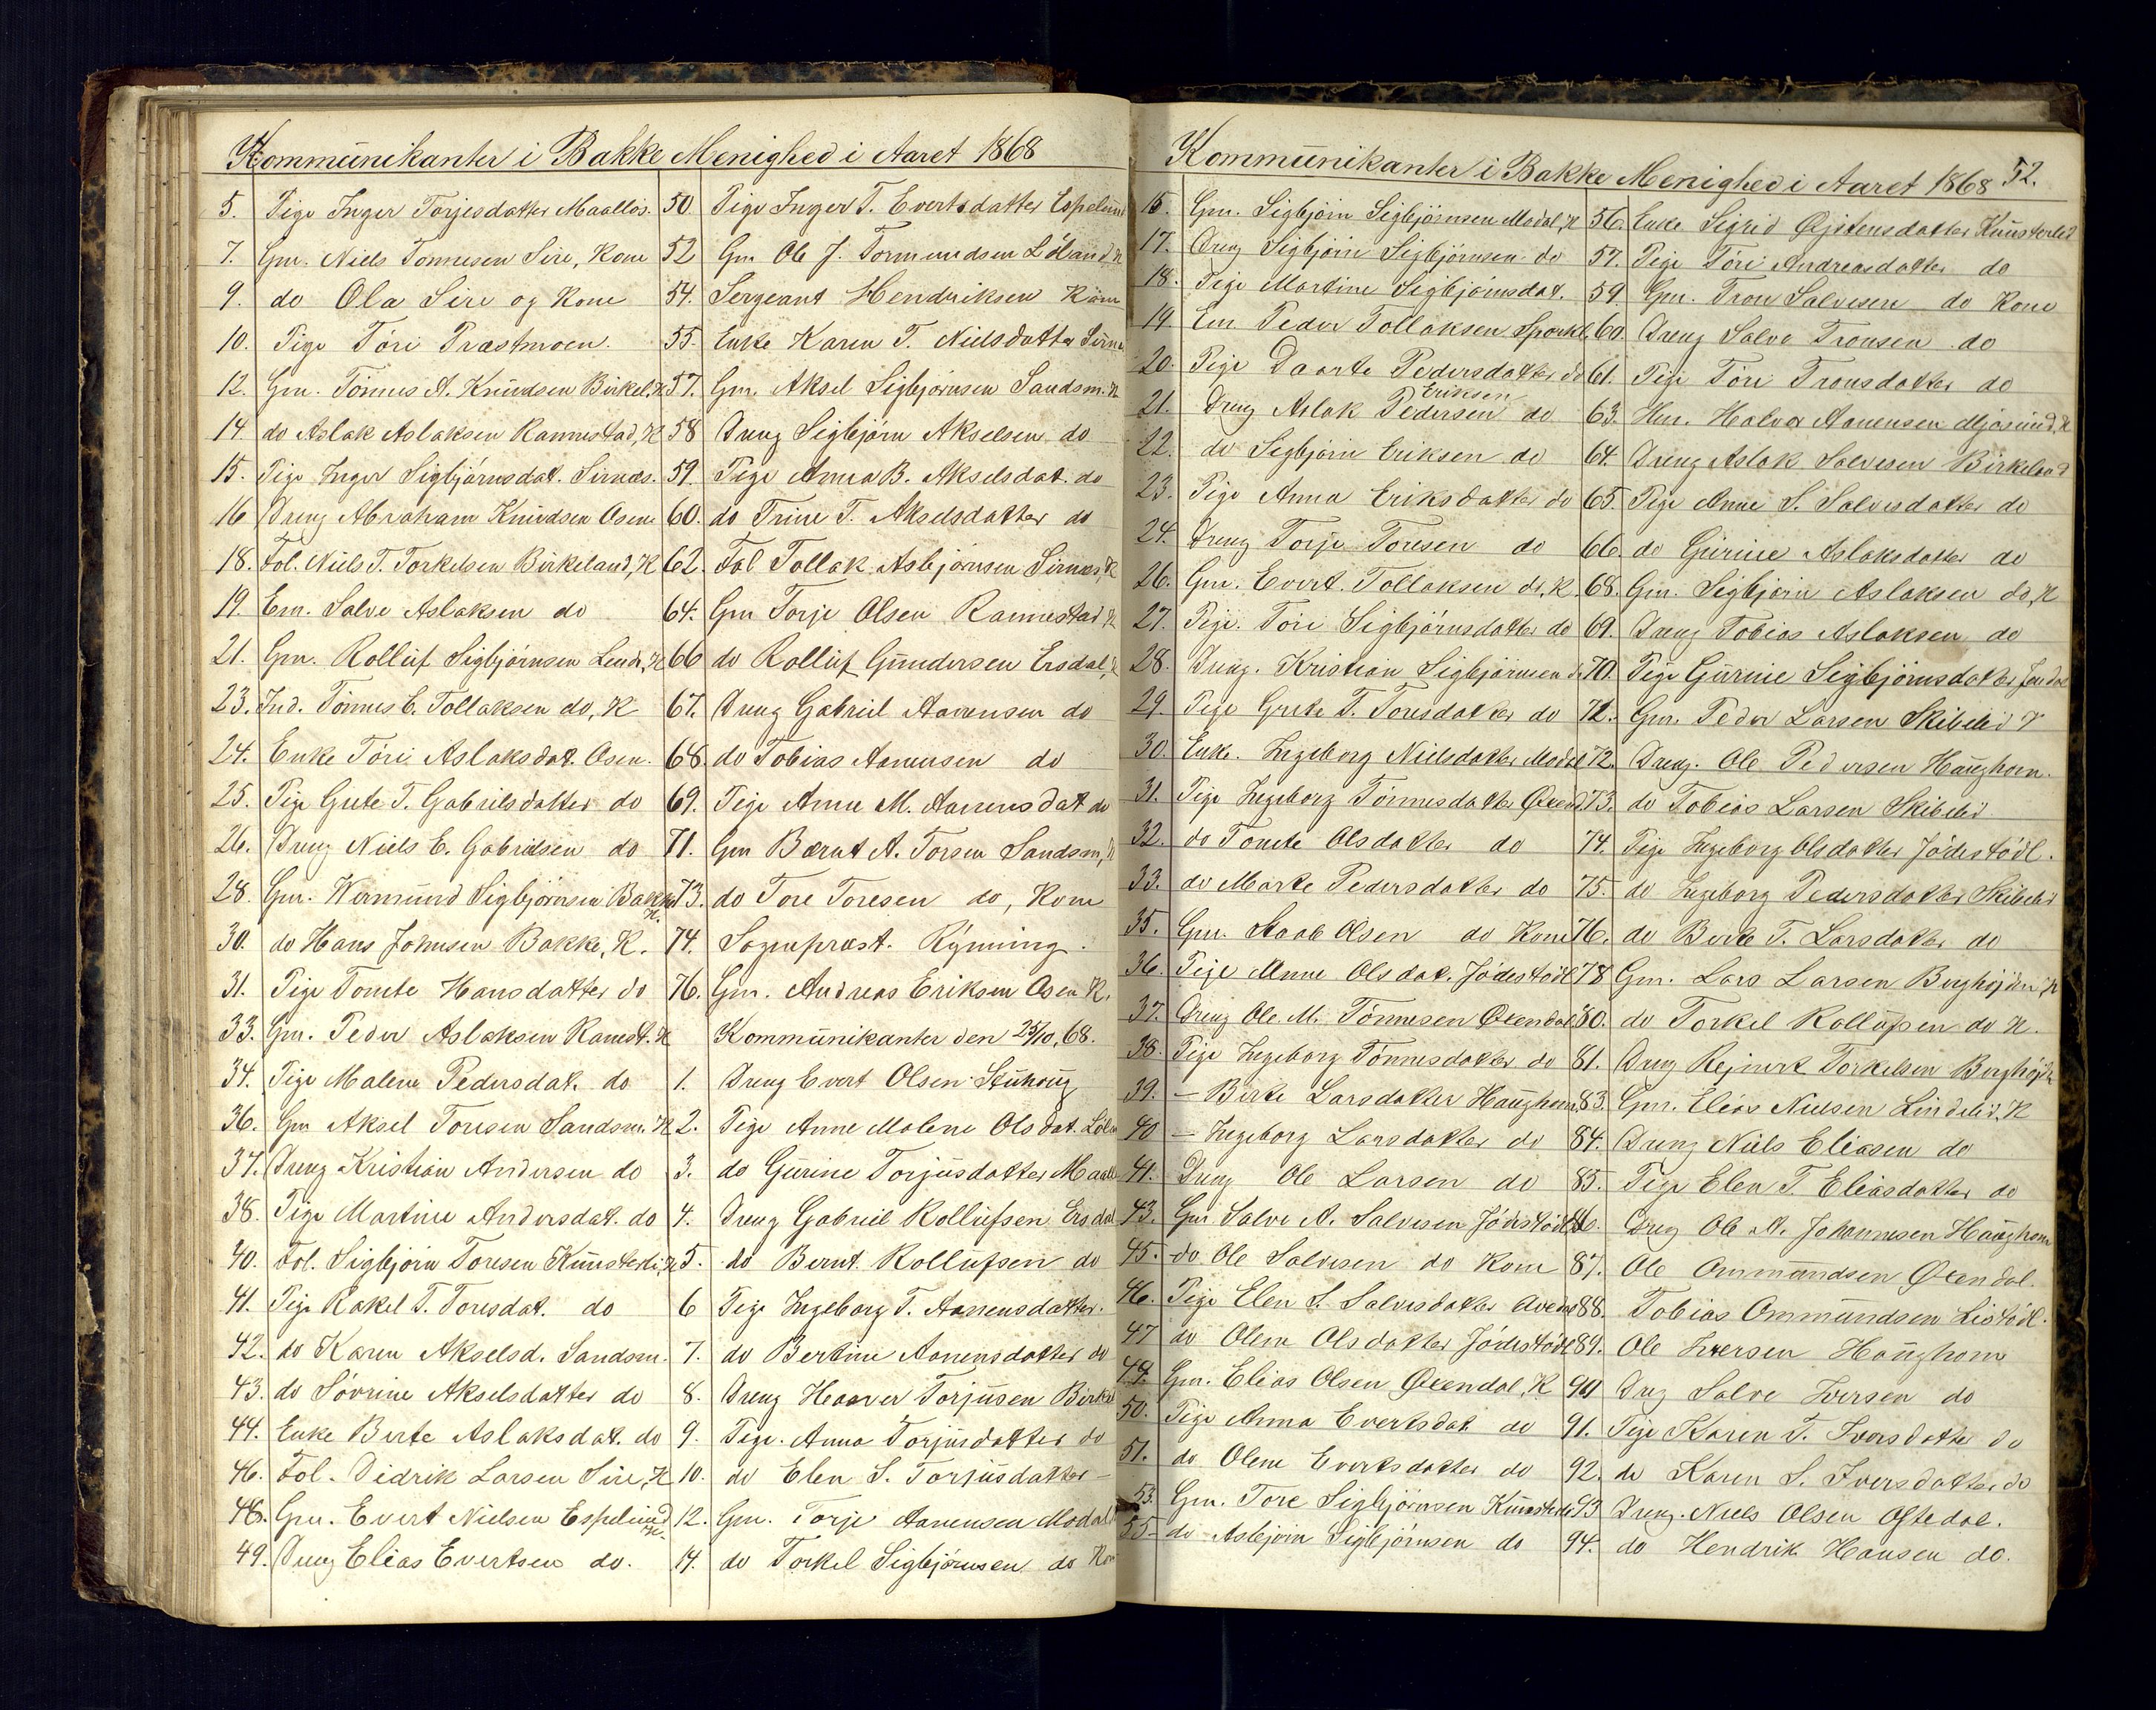 Kommunikanter i Bakke Menighed i Aaret 1868
5. Pige Inger Torjesdatter Maallos.
7. Gm. Niels Tønnesen Sire, Kone
9. do Ola Sire og Kone
10. Pige Tøri Præstmoen.
12. Gm. Tønnes A. Knudsen Birkel. K
14. do Aslak Aslaksen Rannestad, K
15. Pige Inger Sigbjørnsdat. Sirnæs.
16 Dreng Abraham Knudsen Osen
18. Fol. Niels T. Torkelsen Birkeland, K
19. Em. Salve Aslaksen do
21. Gm. Rolluf Sigbjørnsen Lende, K
23. Ind. Tønnes E. Tollaksen do, K
24. Enke Tøri Aslaksdat. Osen.
25. Pige Grete T. Gabrielsdatter do
26. Dreng Niels E. Gabrielsen do
28. Gm. Wermund Sigbjørnsen Bakke K.
30. do Hans Johnsen Bakke, K.
31. Pige Tomte Hansdatter do
33. Gm. Peder Aslaksen Ranest. K
34. Pige Malene Pedersdat. do
36. Gm Aksel Toresen Sandsm. K
37. Dreng Kristian Andersen do
38. Pige Martine Andersdat. do
40. Fol. Sigbjørn Toresen Kunsterli. K
41. Pige Rakel T. Toresdat. do
42. do Karen Akselsd. Sandsm.
43. do Sövrine Akselsdatter do
44. Enke Berte Aslaksdat. do
46. Fol. Didrik Larsen Sire, K
48. Gm. Evert Nielsen Espelund K.
49. Dreng Elias Evertsen do.
50. Pige Inger T. Evertsdatter Espelund
52 Gm Ole J. Tormundsen Löland K
54. Sergeant Hendriksen Kone
55. Enke Karen T. Nielsdatter
57. Gm. Aksel Sigbjørnsen Sandsm. K
58 Dreng Sigbjørn Akselsen do
59. Pige Anna B. Akselsdat. do
60. do Trine T. Akselsdatter do
62. Fol Tollak Asbjørnsen Sirnæs, K
64. Gm Torje Olsen Rannestad K
66 do Rolluf Gundersen Ersdal, K
67. Dreng Gabriel Aanensen do
68. do Tobias Aanensen do
69. Pige Anne M. Aanensdat do
71. Gm Bærnt A. Torsen Sandsm, K
73. do Tore Toresen do, Kone
74. Sognepræst. Rynning.
76. Gm. Andreas Eriksen Osen K.
Kommunikanter den 25/10, 68.
1. Dreng Evert Olsen Stuhoug
2. Pige Anne Malene Olsdat. Löland
3. do Gurine Torjusdatter
4. Dreng Gabriel Rollufsen Ersdal
5. do Bernt Rollufsen do
6 Pige Ingeborg T. Aanensdatter.
7. do Bertine Aanensdatter do
8. Dreng Haaver Torjusen Birkel
9. Pige. Anna Torjusdatter do
10. do Elen S. Torjusdatter –
12. Gm. Torje Aanensen Modal
14. do Torkel Sigbjørnsen do Kone
Kommunikanter i Bakke Menighed i Aaret 1868 52.
16. Gm. Sigbjørn Sigbjørnsen Modal, K
17. Dreng Sigbjørn Sigbjörnsen do
18. Pige Martine Sigbjørnsdat.
19. Em. Peder Tollaksen
20. Pige Daarte Pedersdatter do
21. Dreng Aslak Pedersen Eriksen do
22. do Sigbjørn Eriksen do
23. Pige Anna Eriksdatter do
24. Dreng Torje Toresen do
26. Gm. Evert Tollaksen do, K.
27. Pige. Tøri Sigbjørnsdatter do
28. Dreng. Kristian Sigbjørnsen do
29. Pige Grete T. Toresdatter do
30. Enke. Ingeborg Nielsdatter Modal
31. Pige Ingeborg Tönnesdatter Øxend.
32. do Tomte Olsdatter do
33. do Marte Pedersdatter do
35. Gm. Olsen do Kone
36. Pige Anne Olsdat. Jödestödl
37. Dreng Ole M. Tönnesen Øxendal
38. Pige Ingeborg Tönnesdatter do
39. – Berte Larsdatter Haughom
40 – Ingeborg Larsdatter do
41. Dreng Ole Larsen do
43. Gm Salve A. Salvesen Jödestödl
45. do Ole Salvesen do Kone
46. Pige Elen S. Salvesdatter
47 do Olene Olsdatter Jödestödl
49. Gm. Elias Olsen Øxendal, K
50. Pige Anna Evertsdat do
51. do Olene Evertsdatter do
53. Gm. Tore Sigbjørnsen Kunsterli
55. do Asbjørn Sigbjørnsen do
56. Enke Sigrid Kunsterlid
57. Pige Töri Andreasdatter do
59. Gm. Tron Salvesen do Kone
60. Dreng Salve Tronsen do
61. Pige Töri Tronsdatter do
63. Halvor Aanensen Mjosund. K
64. Dreng Aslak Salvesen Birkeland
65. Pige Anne S. Salvesdatter do
66. do Gurine Aslaksdatter do
68. Gm. Sigbjørn Aslaksen do, K
69. Dreng Tobias Aslaksen do
70. Pige Gurine Sigbjörnsdatter
72. Gm. Peder Larsen Skibelid K
72. Dreng. Ole Pedersen Haughom.
73. do Tobias Larsen Skibelid
74. Pige Ingeborg Olsdatter Jödestödl.
75. do Ingeborg Pedersdatter Skibelid
76. do Berte T. Larsdatter do
78 Gm. Lars Larsen Berghöjden, K
80. do Torkel Rollufsen do K.
81. Dreng Rejnert Torkelsen Berghöjd
83. Gm. Elias Nielsen Lindelid. K
84. Dreng Niels Eliasen do
85. Pige Elen T. Eliasdatter do
86. Dreng Ole A. Johannesen Haughom
87. Ole Ommundsen Øxendal.
88. Tobias Ommundsen Listödl.
89. Ole Iversen Haughom
90 Dreng Salve Iversen do
91. Pige Karen T. Iversdatter do
92. do Karen S. Iversdatter do
93 Dreng. Niels Olsen Oftedal.
94. do Hendrik Hansen do.